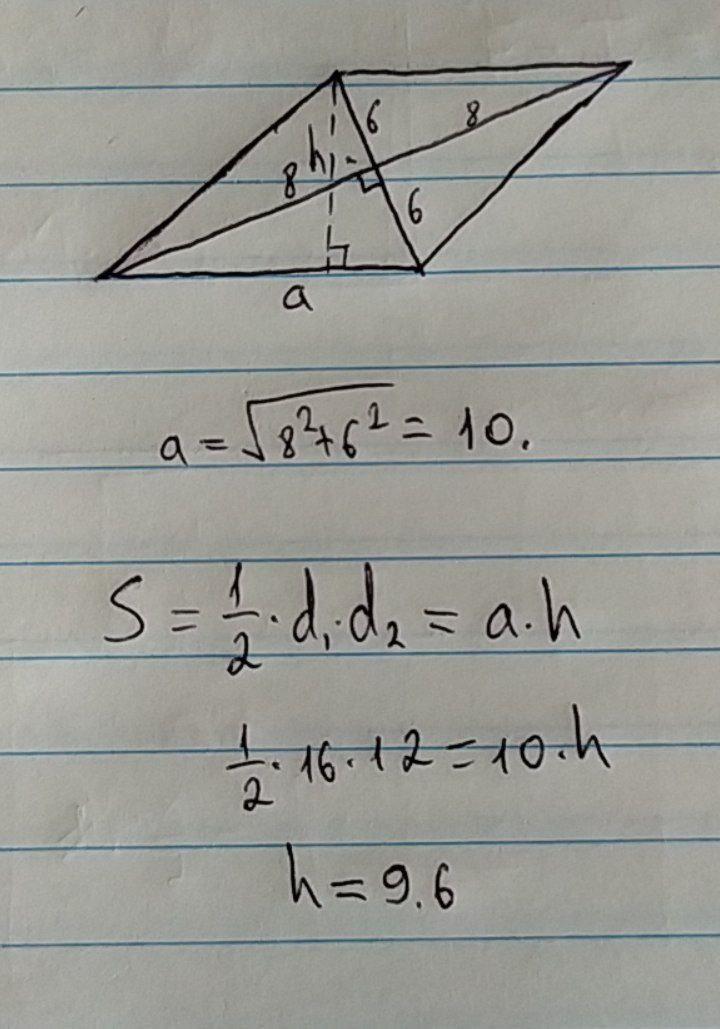 6
8
h
8
6
a
a = √8²+6² = 10.
S = 1/2 · d₁ · d₂ = a · h
1/2 · 16 · 12 = 10 · h
h = 9.6